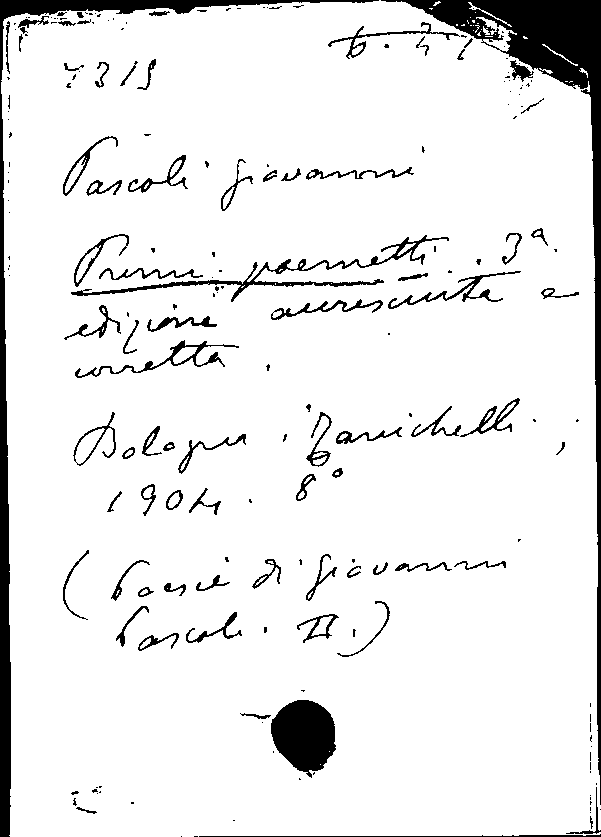 7319
Pascoli Giovanni
Primi poemetti. 3ª
edizione accresciuta e
corretta.
Bologna, Zanichelli,
1904. 8°
(Poesie di Giovanni
Pascoli. II.)